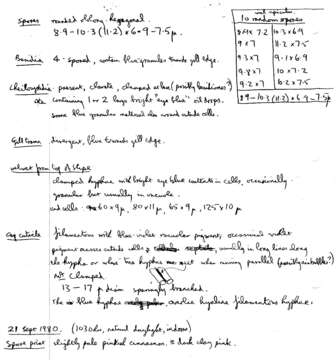 Spores rounded oblong hexagonal
8·9 – 10·3 (11·2) × 6·9 – 7·5 µ
10 random spores
8·9 × 7·2 10·3 × 6·9
9 × 7 11·2 × 7·5
9·3 × 7 9·1 × 6·9
9·8 × 7 10 × 7·2
9·2 × 7 10·2 × 7·5
8·9 – 10·3 (11·2) × 6·9 – 7·5 µ
Basidia 4-spored, contain blue granules towards gill edge.
Cheilocystidia present, clavate, clamped at base (partly basidioles?)
containing 1 or 2 large bright "eye blue" oil drops.
Some blue granular material also around outside cells.
Gill trama divergent, blue towards gill edge.
Velvet from leg Astipe
clamped hyphae with bright eye blue contents in cells, occasionally
granular but usually in vacuole.
end cells 60 × 9 µ, 80 × 11 µ, 65 × 9 µ, 125 × 10 µ
Cap cuticle filamentous with blue-violet vacuolar pigment, occasional violet
pigment across outside cells usually in long lines along
the hypha or where two hyphae meet when running parallel
Clamped.
13 – 17 µ diam sparingly branched.
The blue hyphae overlie hyaline filamentous hyphae.
21 Sept 1980. (1030 hrs, natural daylight, indoor)
Spore print slightly pale pinkish cinnamon = dark clay pink.